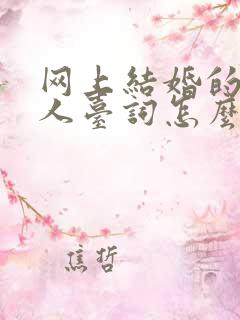 网上結婚的
人臺詞怎麼
焦哲